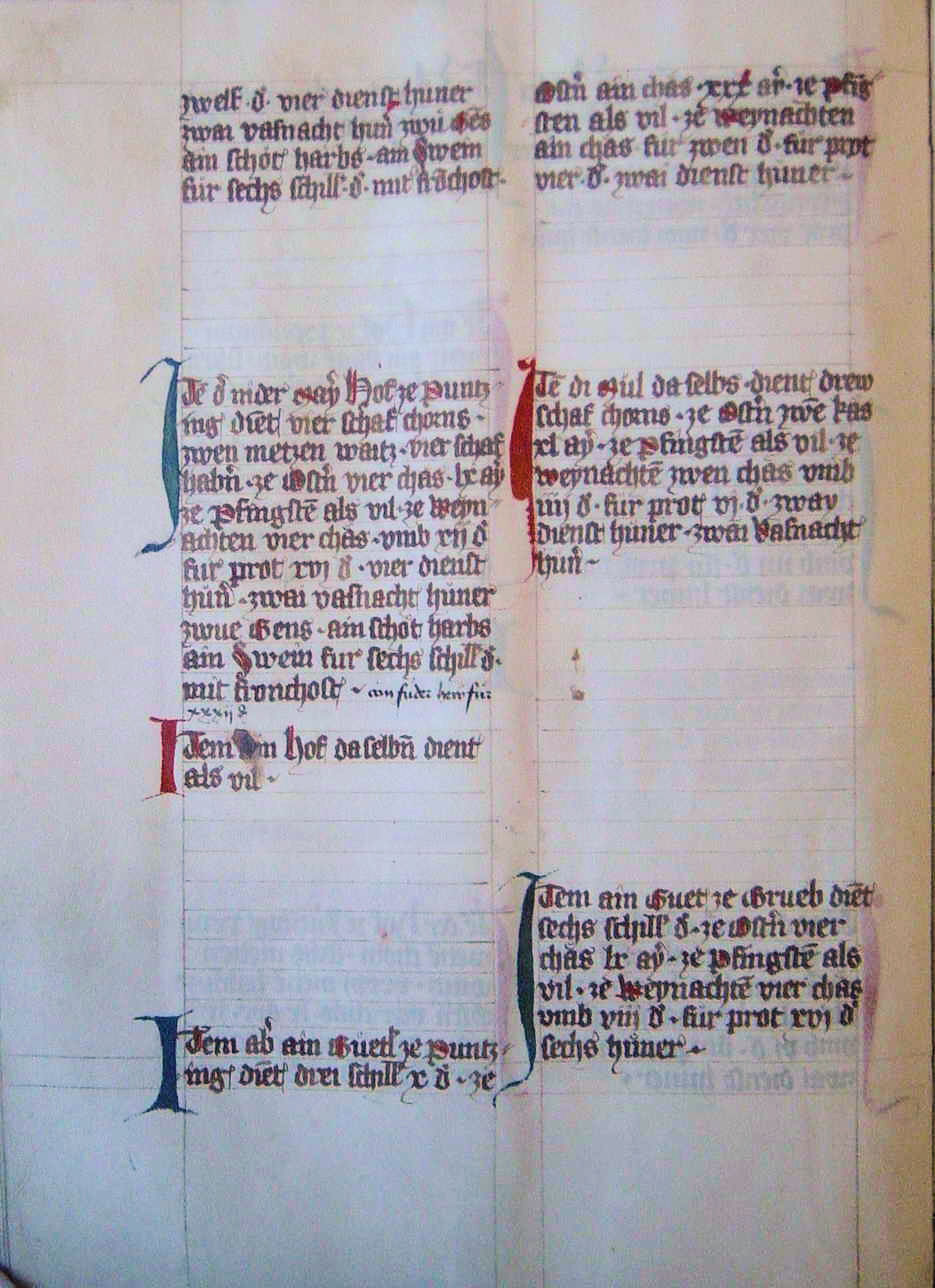 zwelf · d̄ · vier dienst huner
zwai vasnacht hun̄ zwu Gēs
ain schot harbs · ain Swein
fur sechs schill · d̄ · mit frōchost ·
Itē d̄ nider May Hof ze Puntz
ing diēt vier schaf chorns ·
zwen metzen waitz · vier schaf
habn̄ · ze Ostn̄ vier chas · lx ay
ze Pfingstē als vil · ze Weyn
achten vier chas · vmb xij d̄
fur prot xvj d̄ · vier dienst
hun̄ · zwai vasnacht huner
zwue Gens · ain schot harbs
ain Swein fur sechs schill d̄ ·
mit fronchost · ain fuder hew für
xxxij d̄
Item ain hof daselbn̄ dient
als vil ·
Item ab̄ ain Guetl ze Puntz
ing diēt drei schill x d̄ · ze
Ostn̄ ain chas · xxx ay̆ · ze Pfīg
sten als vil · zē Weynachten
ain chas fur zwen d̄ · fur prot
vier · d̄ · zwai dienst huner ·
Itē di Mul daselbs · dient drew
schaf chorns · ze Ostn̄ zwē kas
xl ay̆ · ze Pfingstē als vil · ze
weynachtē zwen chas vmb
iiij d̄ · fur prot vj · d̄ · zway
dienst huner · zwai Vasnacht
hun̄ ·
Item ain Guet ze Grueb diēt
sechs schill d̄ · ze Ostn̄ vier
chas lx ay̆ · ze Pfingstē als
vil · ze Weynachtē vier chas
vmb viij d̄ · fur prot xvj d̄
sechs huner ·